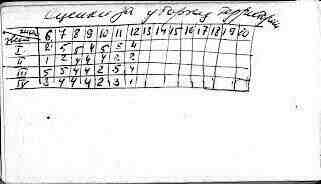 Оценки за уборку территории
6 7 8 9 10 11 12 13 14 15 16 17 18 19 20
I 2 5 5 4 5 3 4
II 1 2 4 4 4 2 2
III 5 5 4 4 2 5 4
IV 3 4 4 4 2 3 1